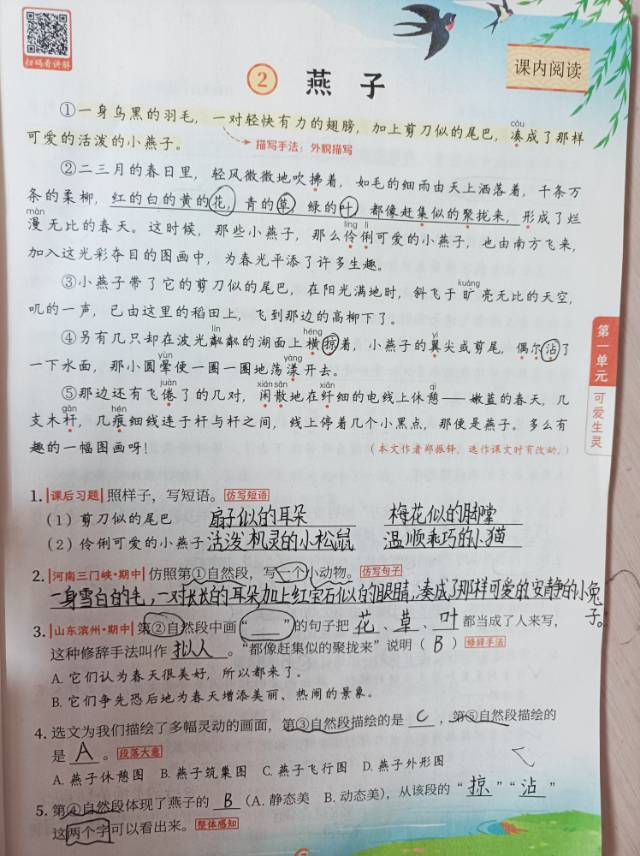 扫码看讲解
课内阅读
2 燕子
①一身乌黑的羽毛，一对轻快有力的翅膀，加上剪刀似的尾巴，凑成了那样
còu
可爱的活泼的小燕子。
描写手法：外貌描写
②二三月的春日里，轻风微微地吹拂着，如毛的细雨由天上洒落着，千条万
条的柔柳，红的白的黄的花，青的草，绿的叶，都像赶集似的聚拢来，形成了烂
màn líng lì
漫无比的春天。这时候，那些小燕子，那么伶俐可爱的小燕子，也由南方飞来，
加入这光彩夺目的图画中，为春光平添了许多生趣。
kuàng
③小燕子带了它的剪刀似的尾巴，在阳光满地时，斜飞于旷亮无比的天空，
叽的一声，已由这里的稻田上，飞到那边的高柳下了。
lín héng yì
④另有几只却在波光粼粼的湖面上横掠着，小燕子的翼尖或剪尾，偶尔沾了
yùn yàng
一下水面，那小圆晕便一圈一圈地荡漾开去。
juàn xián sǎn xiān qì
⑤那边还有飞倦了的几对，闲散地在纤细的电线上休憩——嫩蓝的春天，几
gān hén
支木杆，几痕细线连于杆与杆之间，线上停着几个小黑点，那便是燕子。多么有
趣的一幅图画呀！
（本文作者郑振铎，选作课文时有改动。）
第一单元
可爱生灵
1. 课后习题 照样子，写短语。仿写短语
（1）剪刀似的尾巴 扇子似的耳朵 梅花似的脚印
（2）伶俐可爱的小燕子 活泼机灵的小松鼠 温顺乖巧的小猫
2. 河南三门峡·期中 仿照第①自然段，写一个小动物。仿写句子
一身雪白的毛，一对长长的耳朵加上红宝石似的眼睛，凑成了那样可爱的安静的小兔
子。
3. 山东滨州·期中 第②自然段中画“____”的句子把 花、草、叶都当成了人来写，
这种修辞手法叫作 拟人 。“都像赶集似的聚拢来”说明（ B ）修辞手法
A. 它们认为春天很美好，所以都来了。
B. 它们争先恐后地为春天增添美丽、热闹的景象。
4. 选文为我们描绘了多幅灵动的画面，第③自然段描绘的是 C ，第⑤自然段描绘的
是 A 。段落大意
A. 燕子休憩图 B. 燕子筑巢图 C. 燕子飞行图 D. 燕子外形图
5. 第④自然段体现了燕子的 B （A. 静态美 B. 动态美），从该段的“掠”“沾”
这两个字可以看出来。整体感知